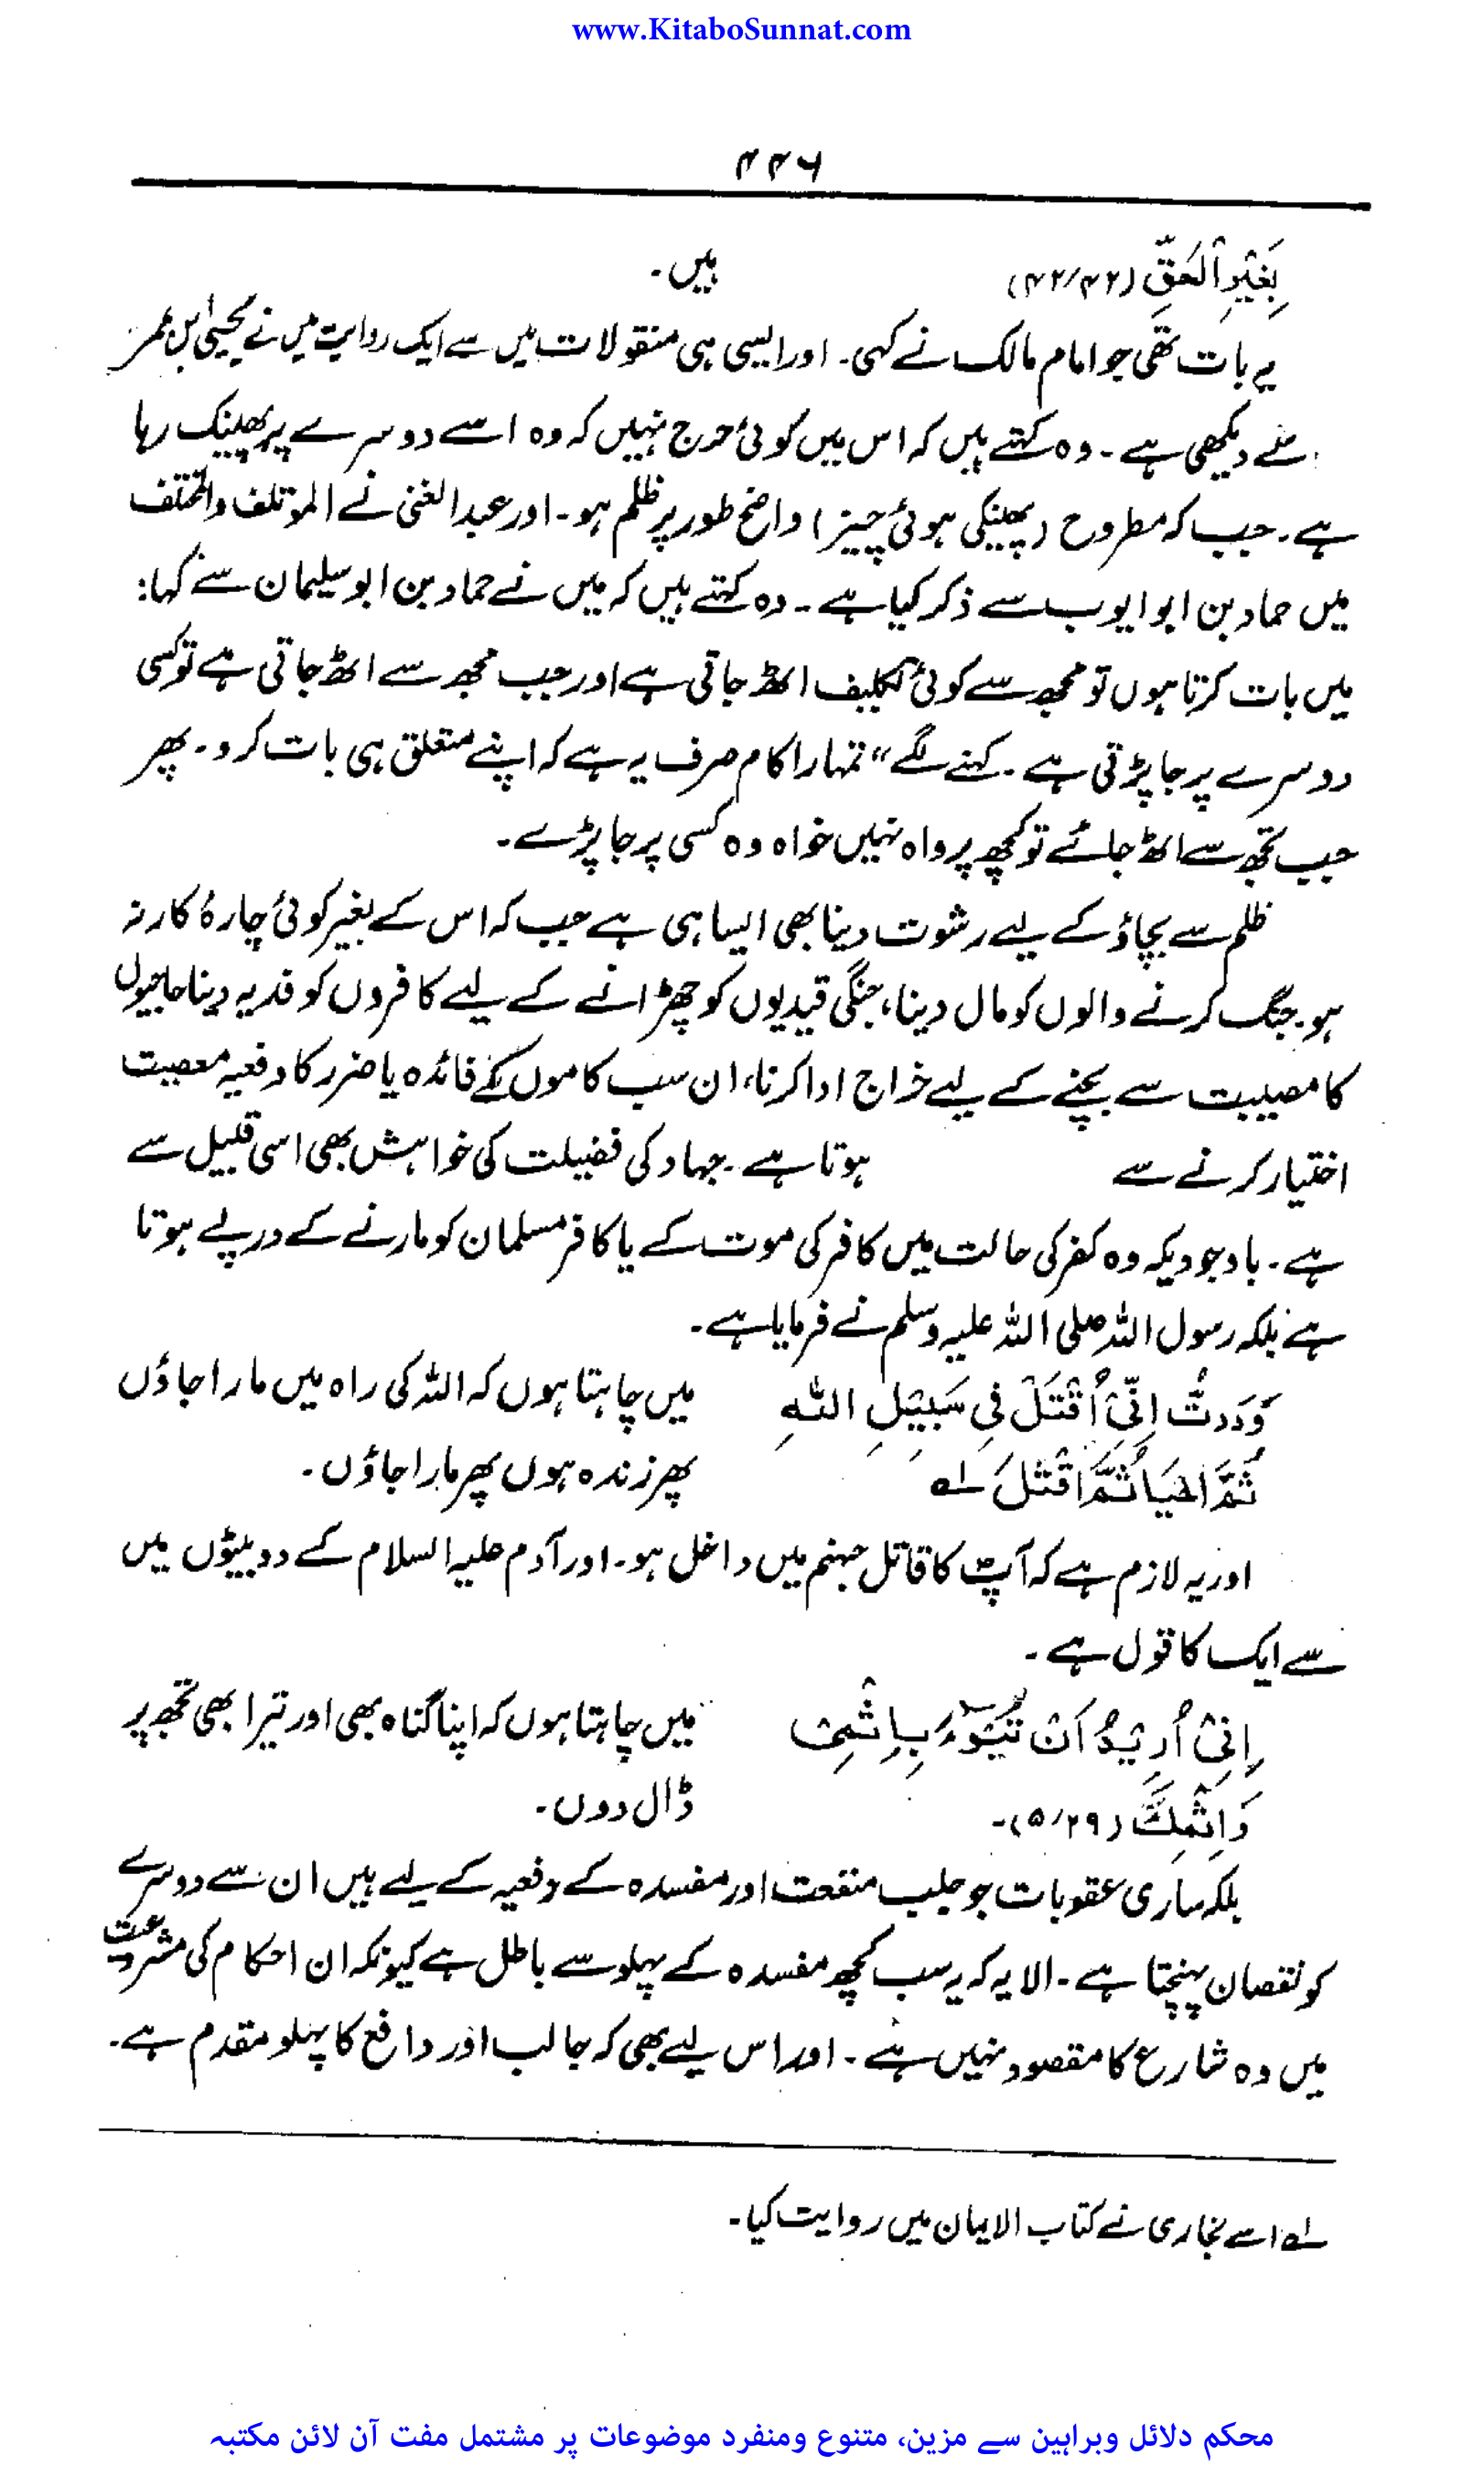 www.KitaboSunnat.com
۴۴۶
بِغَيْرِ الْحَقِّ (۴۲/۴۲) ہیں۔
یہ بات تھی جو امام مالک نے کہی۔ اور ایسی ہی منقولات میں سے ایک روایت میں نے یحییٰ بن عمر
سے دیکھی ہے۔ وہ کہتے ہیں کہ اس میں کوئی حرج نہیں کہ وہ اسے دوسرے پر پھینک رہا
ہے۔ جب کہ مطروح (پھینکی ہوئی چیز) واضح طور پر ظلم ہو۔ اور عبدالغنی نے المؤتلف والمختلف
میں حماد بن ابوایوب سے ذکر کیا ہے۔ وہ کہتے ہیں کہ میں نے حماد بن ابوسلیمان سے کہا:
میں بات کرتا ہوں تو مجھ سے کوئی تکلیف اٹھ جاتی ہے اور جب مجھ سے اٹھ جاتی ہے تو کسی
دوسرے پر جا پڑتی ہے۔ کہنے لگے "تمہارا کام صرف یہ ہے کہ اپنے متعلق ہی بات کرو۔ پھر
جب تجھ سے اٹھ جائے تو کچھ پرواہ نہیں خواہ وہ کسی پر جا پڑے۔
ظلم سے بچاؤ کے لیے رشوت دینا بھی ایسا ہی ہے جب کہ اس کے بغیر کوئی چارۂ کار نہ
ہو۔ جنگ کرنے والوں کو مال دینا، جنگی قیدیوں کو چھڑانے کے لیے کافروں کو فدیہ دینا حاجیوں
کا مصیبت سے بچنے کے لیے خراج ادا کرنا، ان سب کاموں کے فائدہ یا ضرر کا دفعیہ معصیت
اختیار کرنے سے ہوتا ہے۔ جہاد کی فضیلت کی خواہش بھی اسی قبیل سے
ہے۔ باوجودیکہ وہ کفر کی حالت میں کافر کی موت کے یا کافر مسلمان کو مارنے کے درپے ہوتا
ہے بلکہ رسول اللہ صلی اللہ علیہ وسلم نے فرمایا ہے۔
وَدَدتُّ اِنِّیْ اُقْتَلَ فِی سَبِیْلِ اللّٰہِ میں چاہتا ہوں کہ اللہ کی راہ میں مارا جاؤں
ثُمَّ اَحْیَا ثُمَّ اُقْتَلَ ؎۱ پھر زندہ ہوں پھر مارا جاؤں۔
اور یہ لازم ہے کہ آپؐ کا قاتل جہنم میں داخل ہو۔ اور آدم علیہ السلام کے دو بیٹوں میں
سے ایک کا قول ہے۔
اِنِّیْ اُرِیْدُ اَنْ تَبُوْءَ بِاِثْمِیْ میں چاہتا ہوں کہ اپنا گناہ بھی اور تیرا بھی تجھ پر
وَاِثْمِكَ (۵/۲۹)۔ ڈال دوں۔
بلکہ ساری عقوبات جو جلب منفعت اور مفسدہ کے دفعیہ کے لیے ہیں ان سے دوسرے
کو نقصان پہنچتا ہے۔ الا یہ کہ یہ سب کچھ مفسدہ کے پہلو سے باطل ہے کیونکہ ان احکام کی مشروعیت
میں وہ شارع کا مقصود نہیں ہے۔ اور اس لیے بھی کہ جالب اور دافع کا پہلو مقدم ہے۔
؎۱ اسے بخاری نے کتاب الایمان میں روایت کیا۔
محکم دلائل وبراہین سے مزین، متنوع ومنفرد موضوعات پر مشتمل مفت آن لائن مکتبہ